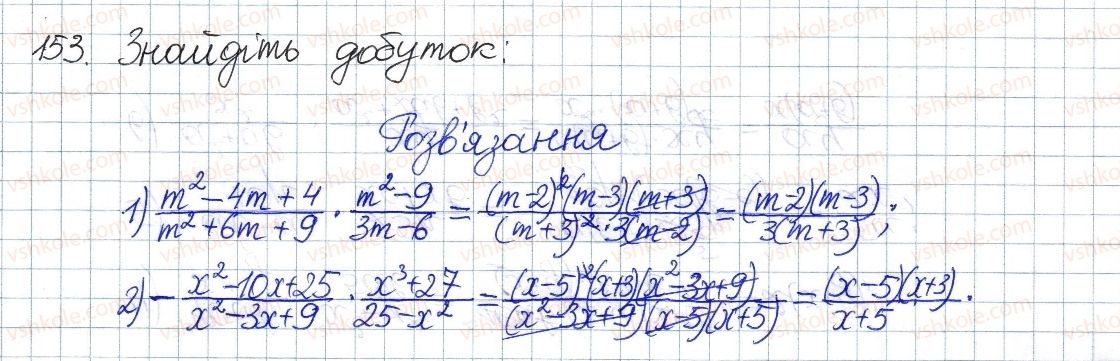 153. Знайдіть добуток:
Розв'язання
1) \frac{m^2-4m+4}{m^2+6m+9} \cdot \frac{m^2-9}{3m-6} = \frac{(m-2)^2(m-3)(m+3)}{(m+3)^2 \cdot 3(m-2)} = \frac{(m-2)(m-3)}{3(m+3)};
2) -\frac{x^2-10x+25}{x^2-3x+9} \cdot \frac{x^3+27}{25-x^2} = \frac{(x-5)^2(x+3)(x^2-3x+9)}{(x^2-3x+9)(x-5)(x+5)} = \frac{(x-5)(x+3)}{x+5}.